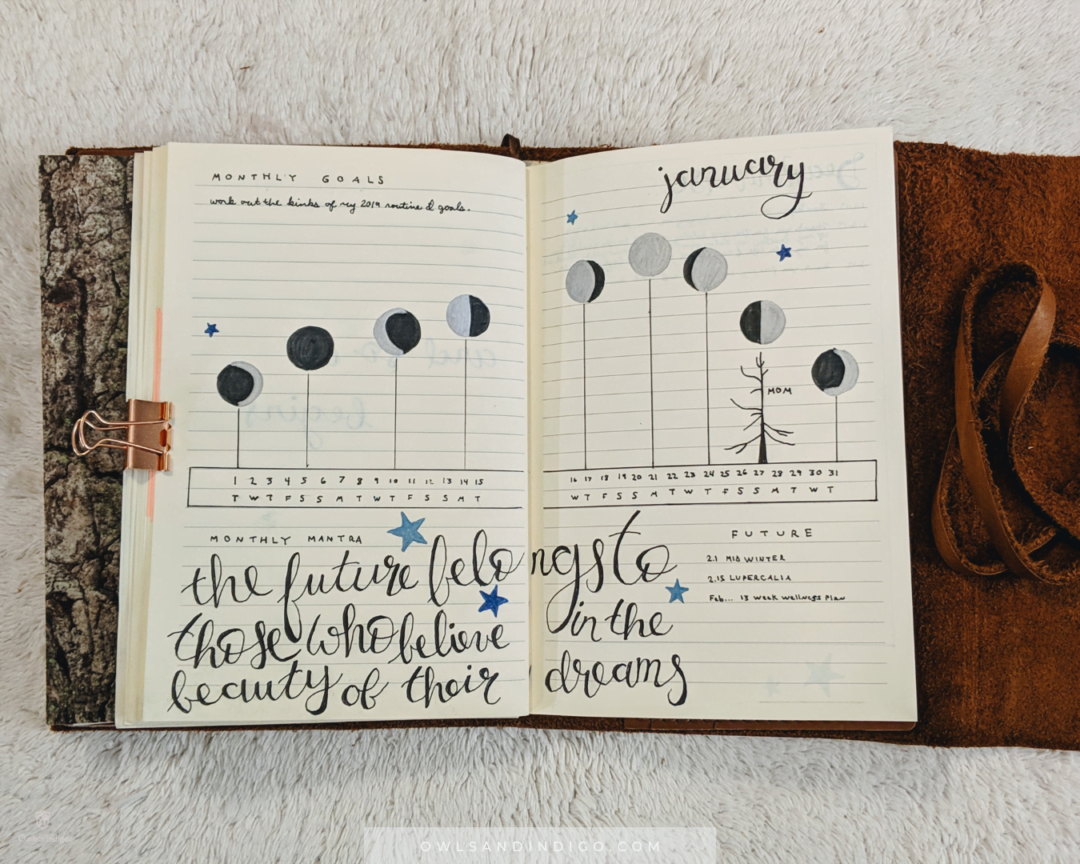 MONTHLY GOALS
work out the kinks of my 2019 routine & goals.
january
MOM
1 2 3 4 5 6 7 8 9 10 11 12 13 14 15 16 17 18 19 20 21 22 23 24 25 26 27 28 29 30 31
T W T F S S M T W T F S S M T W T F S S M T W T F S S M T W T
MONTHLY MANTRA
the future belongs to
those who believe in the
beauty of their dreams
FUTURE
2.1 MID WINTER
2.15 LUPERCALIA
Feb... 13 week wellness Plan
OWLSANDINDIGO.COM